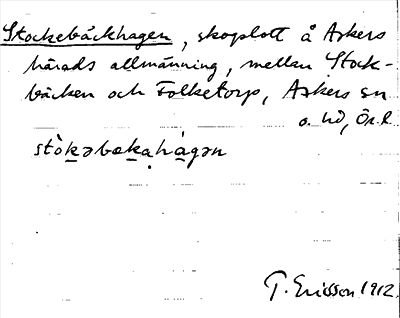 Stockebäckhagen, skoplott å Askers
härads allmänning, mellan Stock-
bäcken och Folketorp, Askers sn
o. hd, Ör. l.
stòkəbækahágən
T. Ericsson 1912.